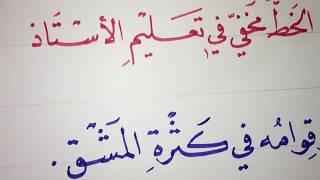 الخَطُّ مَخْفِيٌّ فِي تَعْلِيْمِ الأُسْتَاذِ
وقِوامُه في كَثْرَةِ المَشْقِ.